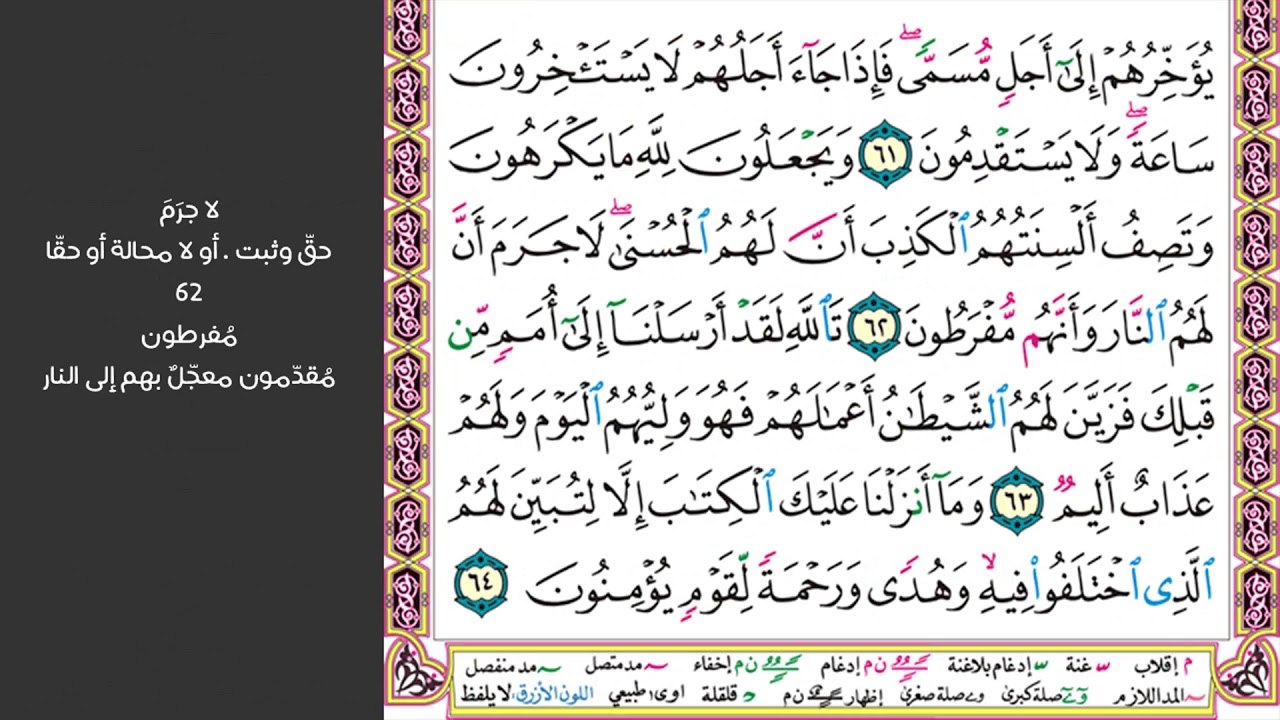 يُؤَخِّرُهُمْ إِلَىٰٓ أَجَلٍ مُّسَمًّى ۖ فَإِذَا جَآءَ أَجَلُهُمْ لَا يَسْتَـْٔخِرُونَ
سَاعَةً ۖ وَلَا يَسْتَقْدِمُونَ ٦١ وَيَجْعَلُونَ لِلَّهِ مَا يَكْرَهُونَ
وَتَصِفُ أَلْسِنَتُهُمُ ٱلْكَذِبَ أَنَّ لَهُمُ ٱلْحُسْنَىٰ ۖ لَا جَرَمَ أَنَّ
لَهُمُ ٱلنَّارَ وَأَنَّهُم مُّفْرَطُونَ ٦٢ تَٱللَّهِ لَقَدْ أَرْسَلْنَآ إِلَىٰٓ أُمَمٍ مِّن
قَبْلِكَ فَزَيَّنَ لَهُمُ ٱلشَّيْطَٰنُ أَعْمَٰلَهُمْ فَهُوَ وَلِيُّهُمُ ٱلْيَوْمَ وَلَهُمْ
عَذَابٌ أَلِيمٌ ٦٣ وَمَآ أَنزَلْنَا عَلَيْكَ ٱلْكِتَٰبَ إِلَّا لِتُبَيِّنَ لَهُمُ
ٱلَّذِى ٱخْتَلَفُوا۟ فِيهِ ۙ وَهُدًى وَرَحْمَةً لِّقَوْمٍ يُؤْمِنُونَ ٦٤
لا جرَمَ
حقّ وثبت . أو لا محالة أو حقّا
62
مُفرطون
مُقدّمون معجّلٌ بهم إلى النار
م إقلاب غنة إدغام بلاغنة ن م إدغام ن م إخفاء مد متصل مد منفصل
المد اللازم صلة كبرى و ے صلة صغرى إظهار ن م قلقلة اوى، طبيعي اللون الأزرق: لا يلفظ